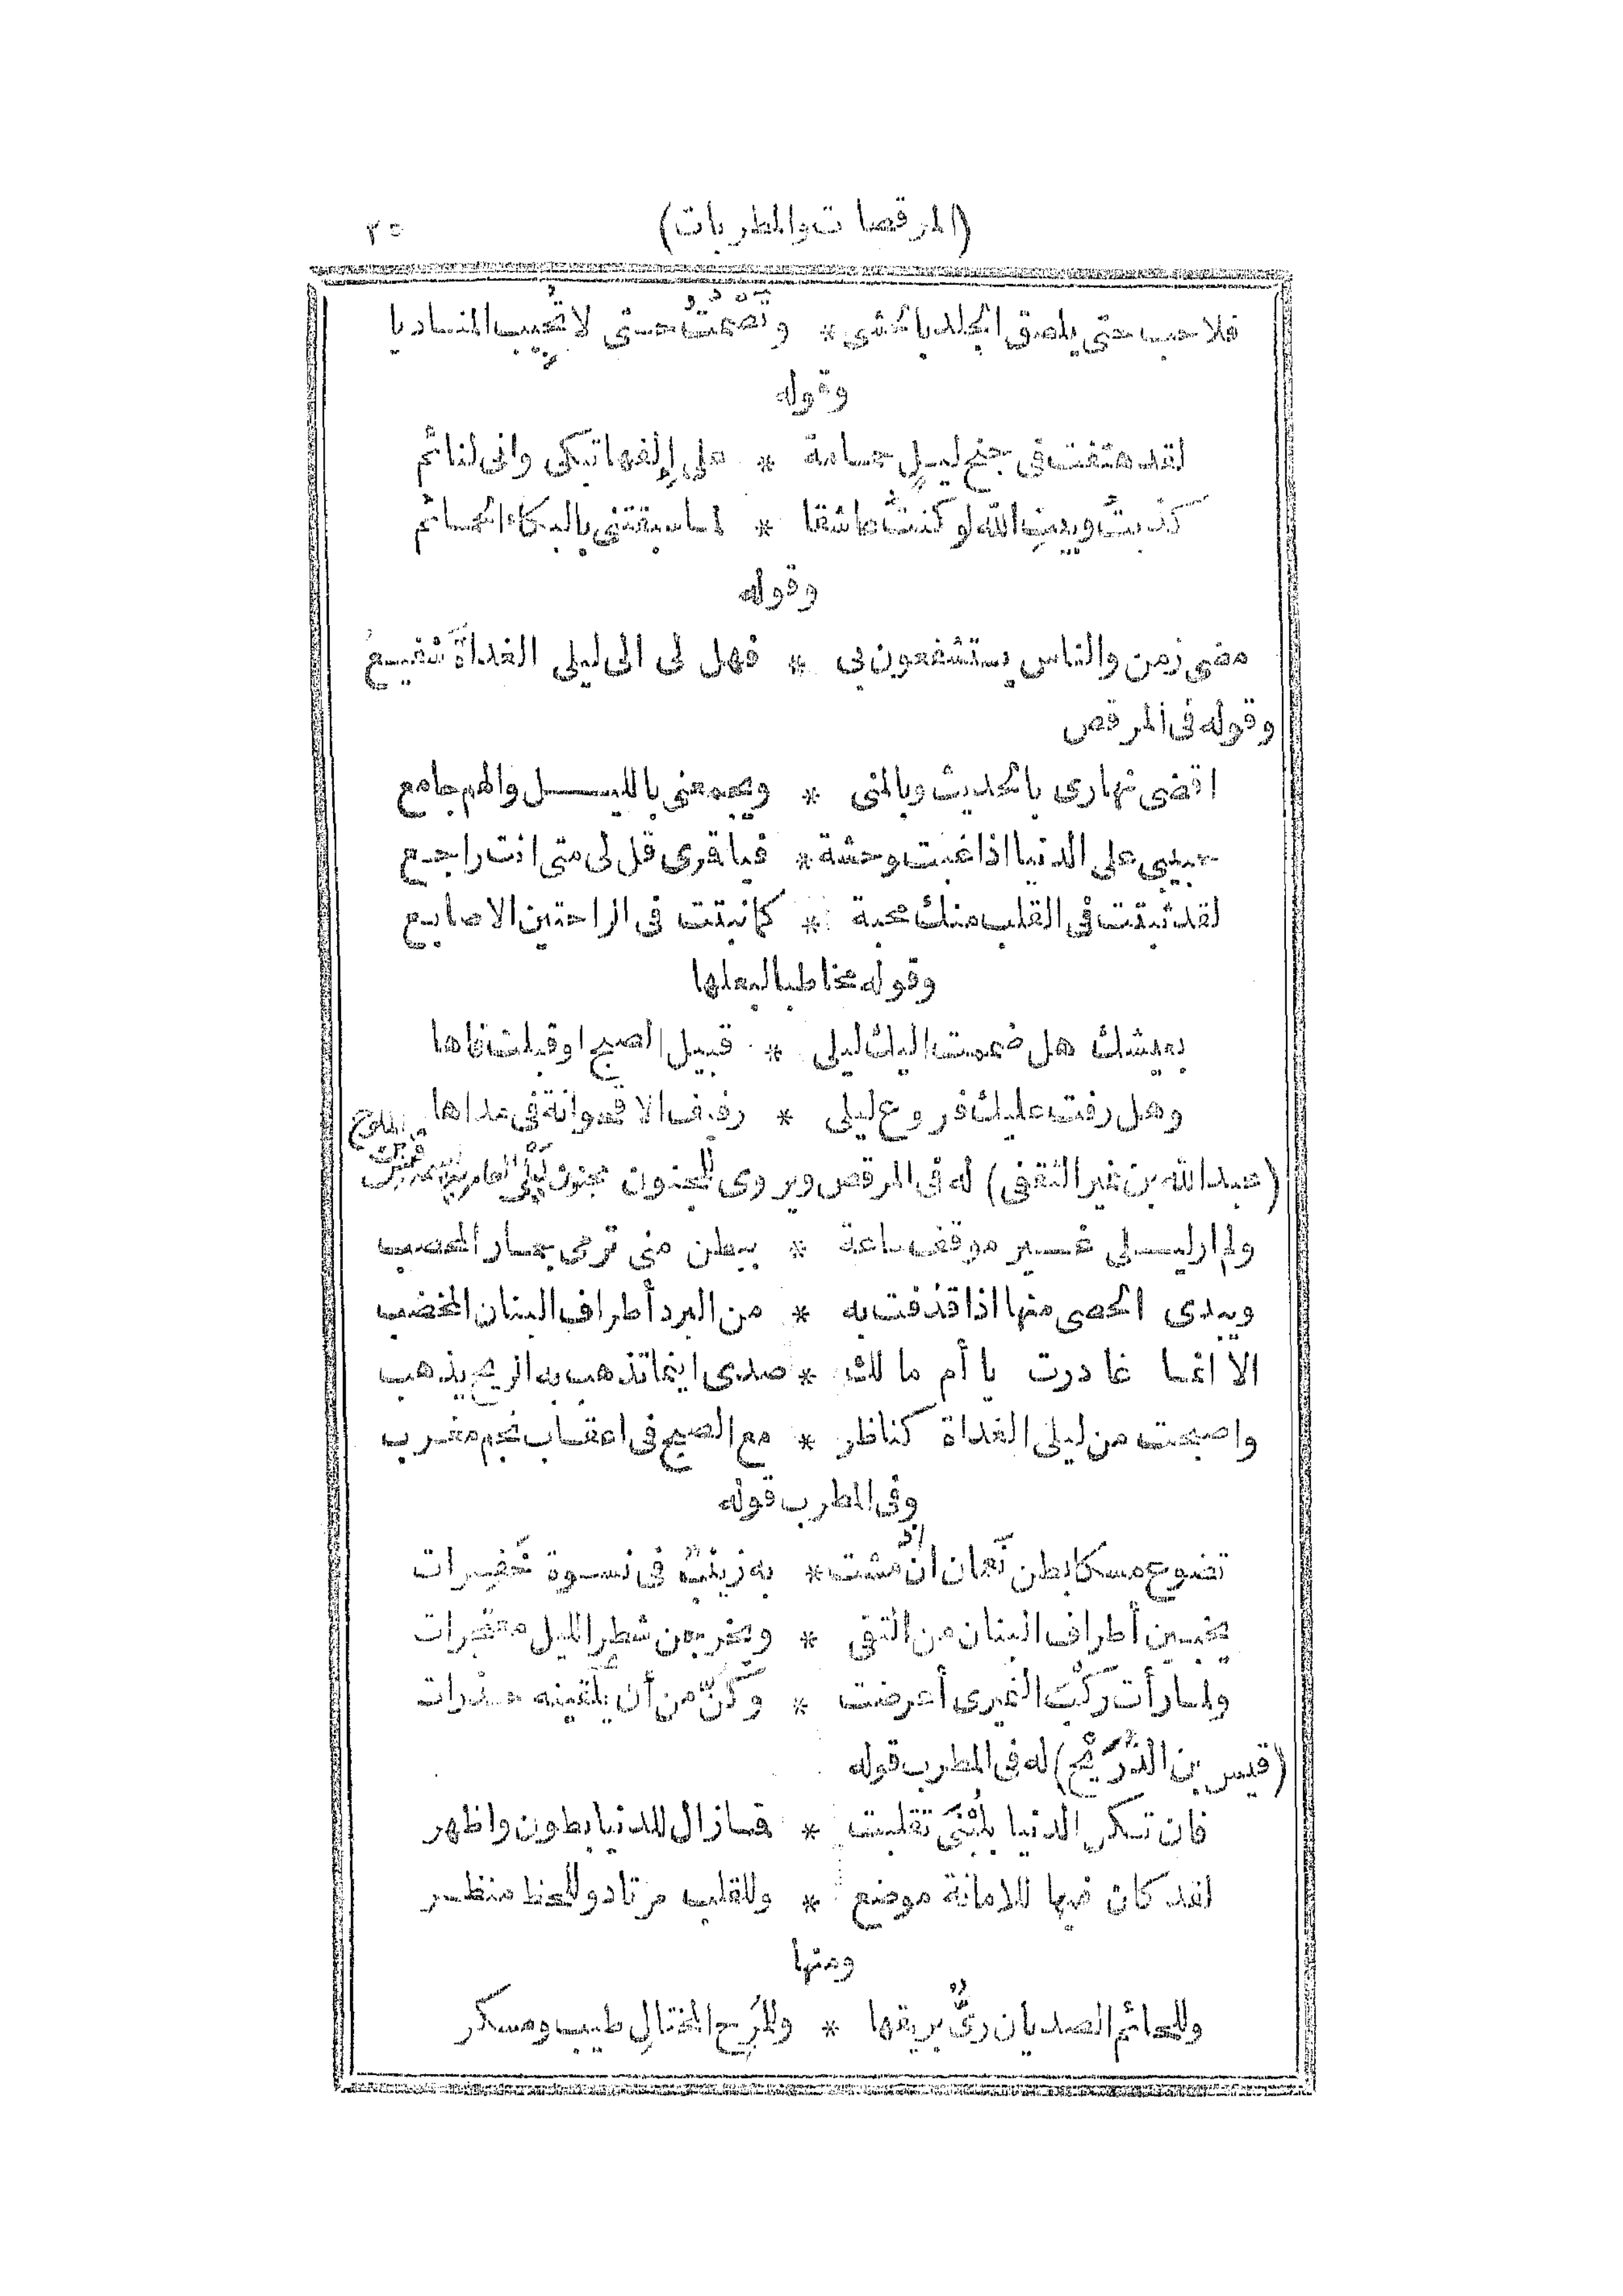 (المرقصات والمطربات) ٢٥
فلا حب حتى يلصق الجلد بالحشى * وتصمت حتى لا تجيب المناديا
وقوله
لقد هتفت فى جنح ليل حمامة * على إلفها تبكى وانى لنائم
كذبت وبيت الله لو كنت عاشقا * لما سبقتنى بالبكاء الحمائم
وقوله
مضى زمن والناس يستشفعون بى * فهل لى الى ليلى الغداة شفيع
وقوله فى المرقص
اقضى نهارى بالحديث وبالمنى * ويجمعنى بالليل والهم جامع
حبيبى على الدنيا اذا غبت وحشة * فيا قمرى قل لى متى انت راجع
لقد ثبتت فى القلب منك محبة * كما نبتت فى الراحتين الاصابع
وقوله مخاطبا لبعلها
بعيشك هل ضممت اليك ليلى * قبيل الصبح او قبلت فاها
وهل رفت عليك فروع ليلى * رفيف الاقحوانة فى نداها
(عبد الله بن نمير الثقفى) له فى المرقص ويروى للمجنون مجنون ليلى العامرية قيس بن الملوح
ولم ار ليلى غير موقف ساعة * ببطن منى ترمى جمار المحصب
ويبدى الحصى منها اذا قذفت به * من البرد أطراف البنان المخضب
الا انما غادرت يا أم مالك * صدى اينما تذهب به الريح يذهب
واصبحت من ليلى الغداة كناظر * مع الصبح فى اعقاب نجم مغرب
وفى المطرب قوله
تضوع مسكا بطن نعمان ان مشت * به زينب فى نسوة خفرات
يخبين أطراف البنان من التقى * ويخرجن شطر الليل معتجرات
ولما رأت ركب النميرى أعرضت * وكن من أن يلقينه حذرات
(قيس بن الذريح) له فى المطرب قوله
فان تكن الدنيا بلبنى تقلبت * فما زال للدنيا بطون واظهر
لقد كان فيها للامانة موضع * وللقلب مرتاد وللحظ منظر
ومنها
وللحائم الصديان رى بريقها * وللمرح المختال طيب ومسكر